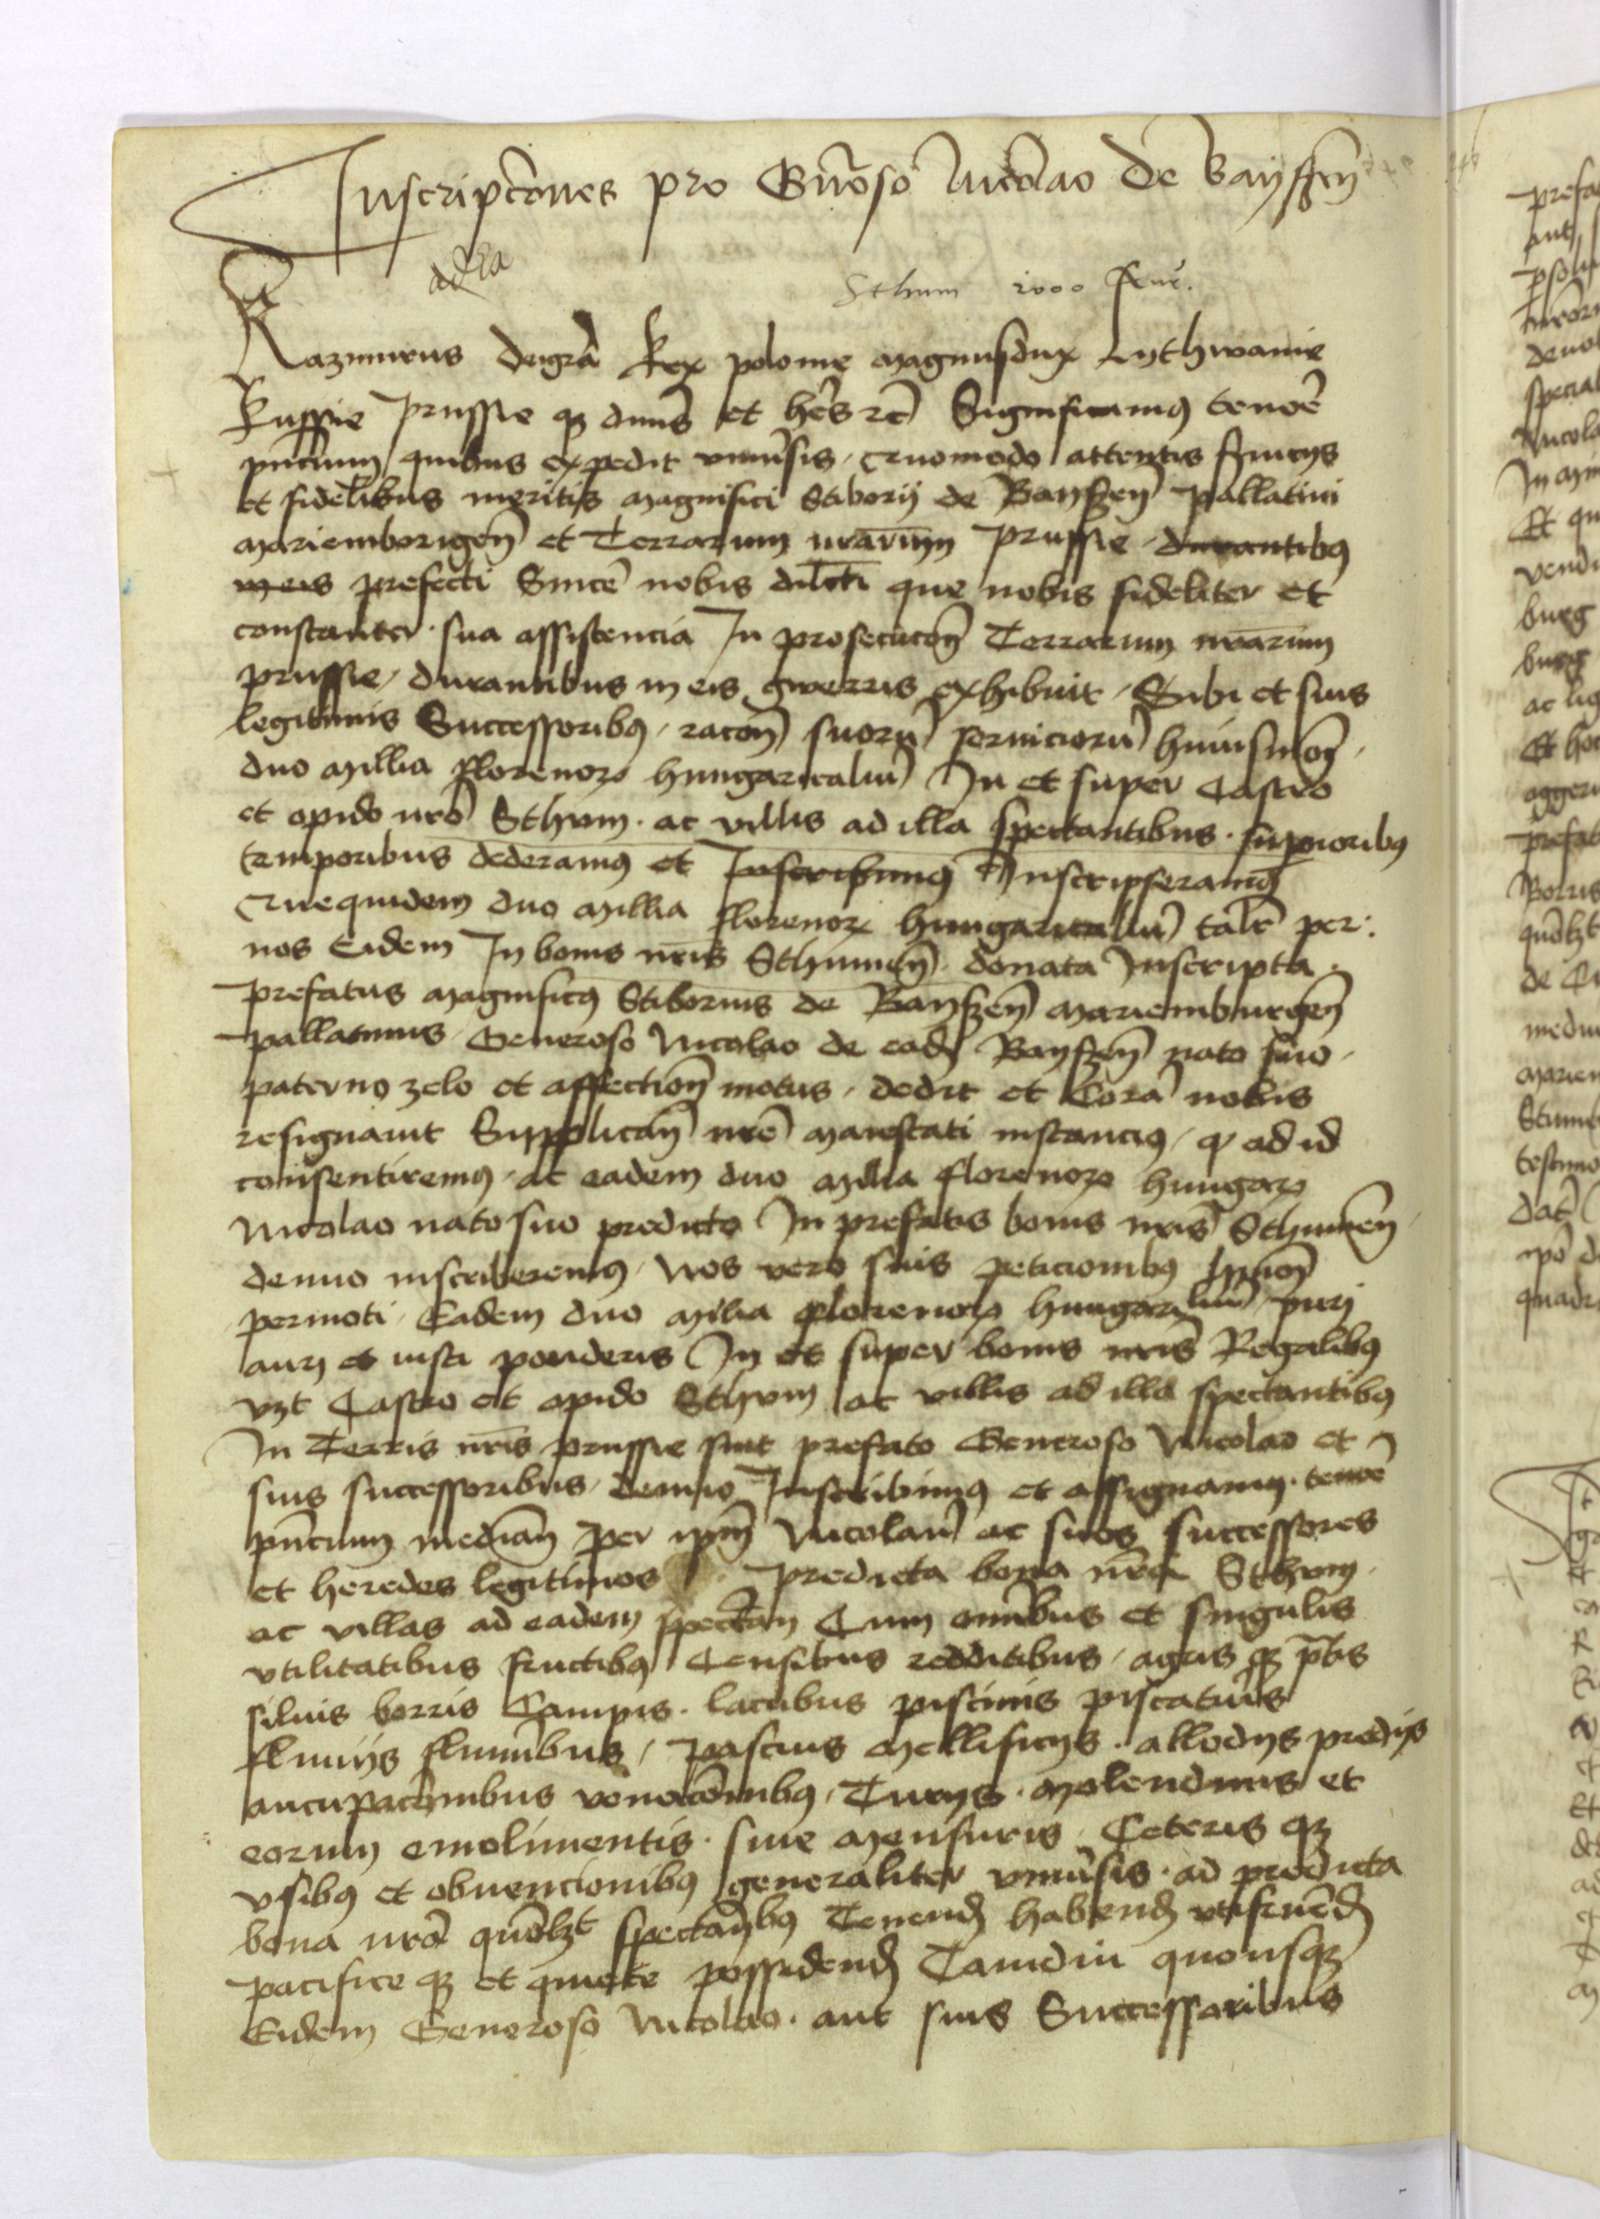 Inscripcōnes pro Gn̄oso Nicolao de Bayszen̄
Sthum 2000 flor.
Kazimirus deigrā Rex polonie magnusdux Lythwanie
Russie prussie qȝ dn̄us et hēs rc̄ Significamus tenoē
pn̄cium quibus expedit vniuſis. Quomodo attentis seruicijs
et fidelibus meritis magnifici Stiborij de Bayszen̄ pallatini
mariemborigen̄ et Terrarum nr̄arum prussie durantibus
in eis prefecti Sincē nobis dilc̄ti que nobis fideliter et
constanter sua assistencia In prosecucōn̄ Terrarum nr̄arum
prussie durantibus in eis gwerris exhibuit. Sibi et suis
legitimis Successoribus racōn̄ suorū seruiciorū huiusmōi
duo millia florenorȝ hungaricaliū In et super Castro
et opido nrō Sthvm ac villis ad illa spectantibus superioribus
temporibus dederamus et Inscribimus Inscripseramus
Quequidem duo millia florenorȝ hungaricaliū talr̄ per
nos Eidem In bonis nr̄is Sthumen̄ donata Inscripta
prefatus magnificus Stiborius de Bayszen̄ mariemburgen̄
pallatinus Generoso Nicolao de eadē Bayszen̄ nato suo
paterno zelo et affection̄ motus dedit et Corā nobis
resignauit Supplican̄ nrē maiestati instancius q ad id
consentiremus ac eadem duo millia florenorȝ hungarȝ
Nicolao nato suo predicto In prefatis bonis nr̄is Sthumen̄
denuo inscriberemus Nos vero suis peticionibus hmōi
permoti Eadem duo milia florenorȝ hungaricaliū puri
auri et iusti ponderis In et super bonis nr̄is Regalibus
vzt Castro et opido Sthvm ac villis ad illa spectantibus
In Terris nr̄is prussie sint prefato Generoso Nicolao et
suis successoribus denuo Inscribimus et assignamus tenoē
pn̄cium median̄ per ipm̄ Nicolaū ac suos successores
et heredes legitimos predicta bona nr̄a Sthvm
ac villas ad eadem spectan̄ Cum omībus et singulis
vtilitatibus fructibus Censibus redditibus agris qȝ ptīs
siluis borris Campis lacubus piscinis piscaturis
fluuijs fluminibus pascuis mellificijs allodijs predijs
aucupacōnibus venacōnibus Turijs molendinis et
eorum emolimentis siue mensuris Ceteris qȝ
vsibus et obuencionibus generaliter vniuſis ad predicta
bona nrā quōlȝt spectan̄bus Tenend̄ habend̄ vtifruēd̄
pacifice qȝ et quiete possidend̄ Tamdiu quousqȝ
Eidem Generoso Nicolao aut suis Successoribus